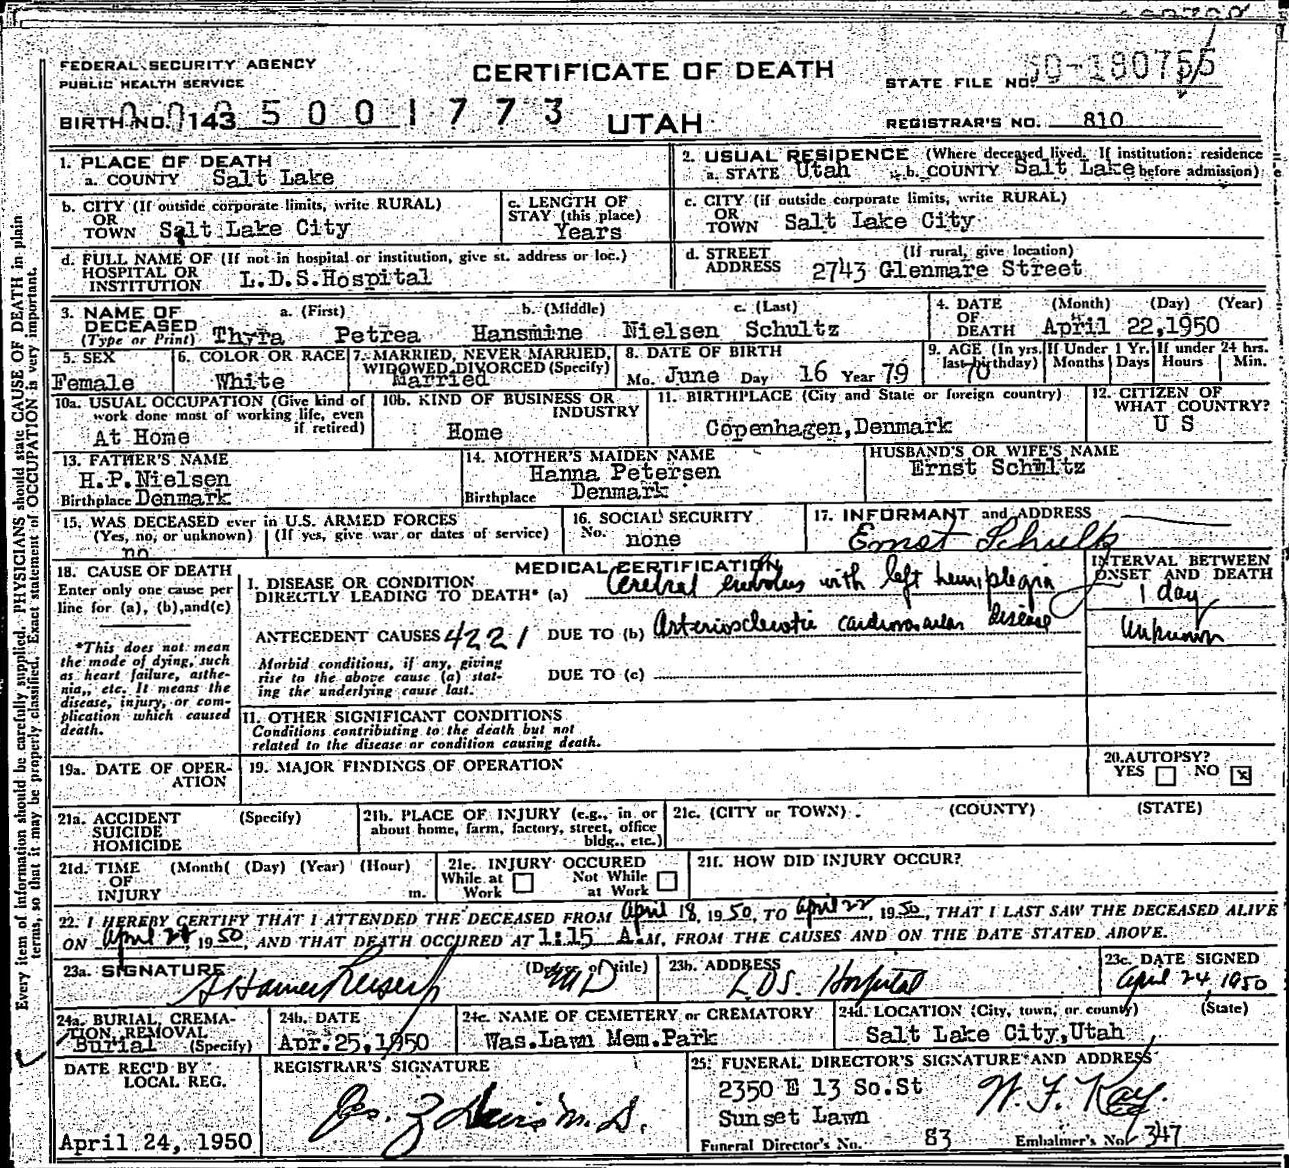 FEDERAL SECURITY AGENCY
PUBLIC HEALTH SERVICE
CERTIFICATE OF DEATH
STATE FILE NO.
BIRTH NO. 143 5 0 0 1 7 7 3
UTAH
REGISTRAR'S NO. 810
1. PLACE OF DEATH
a. COUNTY Salt Lake
2. USUAL RESIDENCE (Where deceased lived. If institution: residence
a. STATE Utah b. COUNTY Salt Lake before admission)
b. CITY (If outside corporate limits, write RURAL)
OR
TOWN Salt Lake City
c. LENGTH OF
STAY (this place)
Years
c. CITY (if outside corporate limits, write RURAL)
OR
TOWN Salt Lake City
d. FULL NAME OF (If not in hospital or institution, give st. address or loc.)
HOSPITAL OR
INSTITUTION L.D.S.Hospital
d. STREET (If rural, give location)
ADDRESS 2743 Glenmare Street
3. NAME OF a. (First) b. (Middle) c. (Last)
DECEASED
(Type or Print) Thyra Petrea Hansmine Nielsen Schultz
4. DATE (Month) (Day) (Year)
OF
DEATH April 22,1950
5. SEX
Female
6. COLOR OR RACE
White
7. MARRIED, NEVER MARRIED,
WIDOWED, DIVORCED (Specify)
Married
8. DATE OF BIRTH
Mo. June Day 16 Year 79
9. AGE (In yrs. last birthday) 70
If Under 1 Yr. Months Days
If under 24 hrs. Hours Min.
10a. USUAL OCCUPATION (Give kind of
work done most of working life, even
if retired)
At Home
10b. KIND OF BUSINESS OR
INDUSTRY
Home
11. BIRTHPLACE (City and State or foreign country)
Copenhagen,Denmark
12. CITIZEN OF
WHAT COUNTRY?
U S
13. FATHER'S NAME
H.P.Nielsen
Birthplace Denmark
14. MOTHER'S MAIDEN NAME
Hanna Petersen
Birthplace Denmark
HUSBAND'S OR WIFE'S NAME
Ernst Schultz
15. WAS DECEASED ever in U.S. ARMED FORCES
(Yes, no, or unknown) (If yes, give war or dates of service)
no
16. SOCIAL SECURITY
No. none
17. INFORMANT and ADDRESS
Ernst Schultz
18. CAUSE OF DEATH
Enter only one cause per
line for (a), (b),and(c)
*This does not mean
the mode of dying, such
as heart failure, asthe-
nia, etc. It means the
disease, injury, or com-
plication which caused
death.
MEDICAL CERTIFICATION
I. DISEASE OR CONDITION
DIRECTLY LEADING TO DEATH* (a) Cerebral embolus with left hemiplegia
ANTECEDENT CAUSES 4221 DUE TO (b) Arteriosclerotic cardiovascular disease
Morbid conditions, if any, giving
rise to the above cause (a) stat-
ing the underlying cause last.
DUE TO (c)
INTERVAL BETWEEN
ONSET AND DEATH
1 day
Unknown
11. OTHER SIGNIFICANT CONDITIONS
Conditions contributing to the death but not
related to the disease or condition causing death.
19a. DATE OF OPER-
ATION
19. MAJOR FINDINGS OF OPERATION
20.AUTOPSY?
YES NO x
21a. ACCIDENT (Specify)
SUICIDE
HOMICIDE
21b. PLACE OF INJURY (e.g., in or
about home, farm, factory, street, office
bldg., etc.)
21c. (CITY or TOWN) (COUNTY) (STATE)
21d. TIME (Month( (Day) (Year) (Hour)
OF
INJURY m.
21e. INJURY OCCURED
While at Work Not While at Work
21f. HOW DID INJURY OCCUR?
22. I HEREBY CERTIFY THAT I ATTENDED THE DECEASED FROM April 18, 1950, TO April 22, 1950, THAT I LAST SAW THE DECEASED ALIVE
ON April 1950, AND THAT DEATH OCCURED AT 1:15 A.M, FROM THE CAUSES AND ON THE DATE STATED ABOVE.
23a. SIGNATURE (Degree of title) MD
23b. ADDRESS
L.D.S. Hospital
23c. DATE SIGNED
April 24, 1950
24a. BURIAL, CREMA-
TION REMOVAL
Burial (Specify)
24b. DATE
Apr.25,1950
24c. NAME OF CEMETERY or CREMATORY
Was.Lawn Mem.Park
24d. LOCATION (City, town, or county) (State)
Salt Lake City,Utah
DATE REC'D BY
LOCAL REG.
April 24, 1950
REGISTRAR'S SIGNATURE
25. FUNERAL DIRECTOR'S SIGNATURE AND ADDRESS
2350 E 13 So.St W. F. Kay
Sunset Lawn
Funeral Director's No. 83 Embalmer's No. 347
Every item of information should be carefully supplied. PHYSICIANS should state CAUSE OF DEATH in plain
terms, so that it may be properly classified. Exact statement of OCCUPATION is very important.